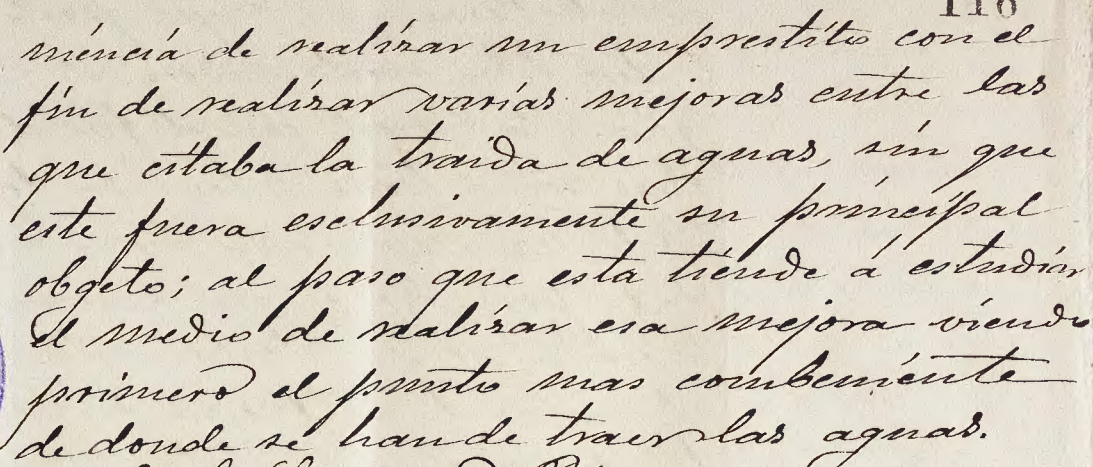 116
niencia de realizar un emprestito con el
fin de realizar varias mejoras entre las
que estaba la traida de aguas, sin que
este fuera esclusivamente su principal
obgeto; al paso que esta tiende á estudiar
el medio de realizar esa mejora viendo
primero el punto mas combeniente
de donde se han de traer las aguas.